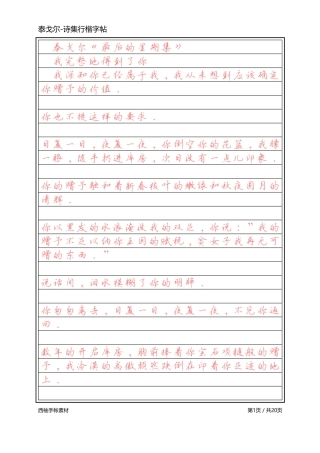 泰戈尔-诗集行楷字帖
泰戈尔《最后的星期集》
我完整地得到了你
我深知你已经属于我，我从未想到应该确定
你赠予的价值。
你也不提这样的要求。
日复一日，夜复一夜，你倒空你的花篮，我瞟
一眼，随手扔进库房，次日没有一点儿印象。
你的赠予融和着新春枝叶的嫩绿和秋夜圆月的
清辉。
你以黑发的水浪淹没我的双足，你说：”我的
赠予不足以纳你王国的赋税，贫女子我再无可
赠的东西。”
说话间，泪水模糊了你的明眸。
你匆匆离去，日复一日，夜复一夜，不见你返
回。
数年的开启库房，胸前捧着你宝石项链般的赠
予，我冷漠的高傲颓然跌倒在印着你足迹的地
上。
西柚字帖素材
第1页 / 共20页